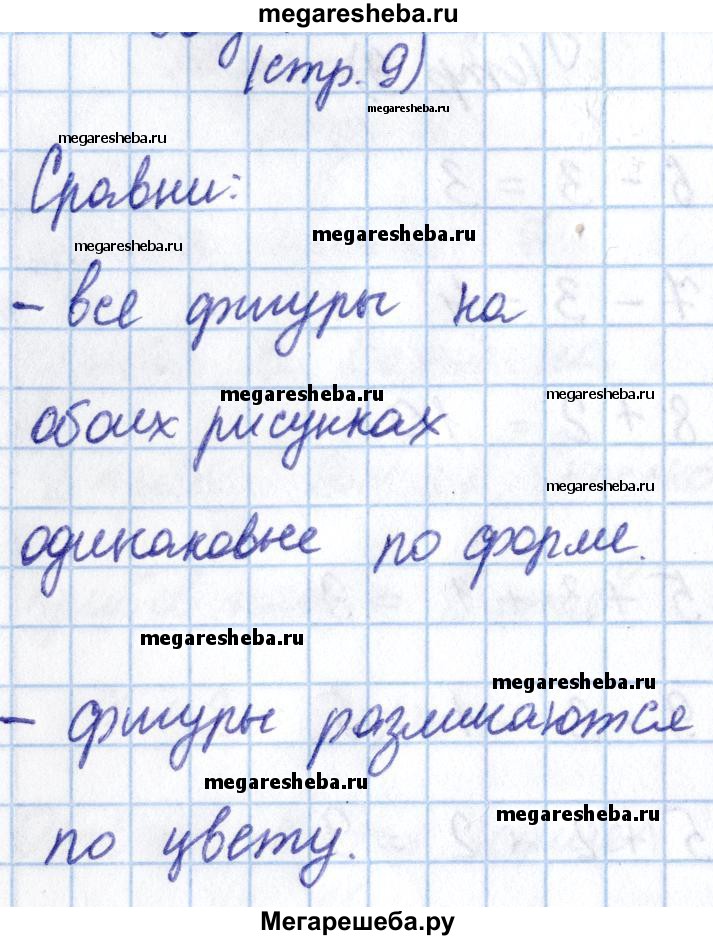 megaresheba.ru
(стр. 9)
megaresheba.ru
megaresheba.ru
Сравни:
megaresheba.ru
megaresheba.ru
- все фигуры на
megaresheba.ru
megaresheba.ru
обоих рисунках
megaresheba.ru
одинаковые по форме.
megaresheba.ru
megaresheba.ru
- фигуры различаются
megaresheba.ru
megaresheba.ru
по цвету.
Мегарешеба.ру